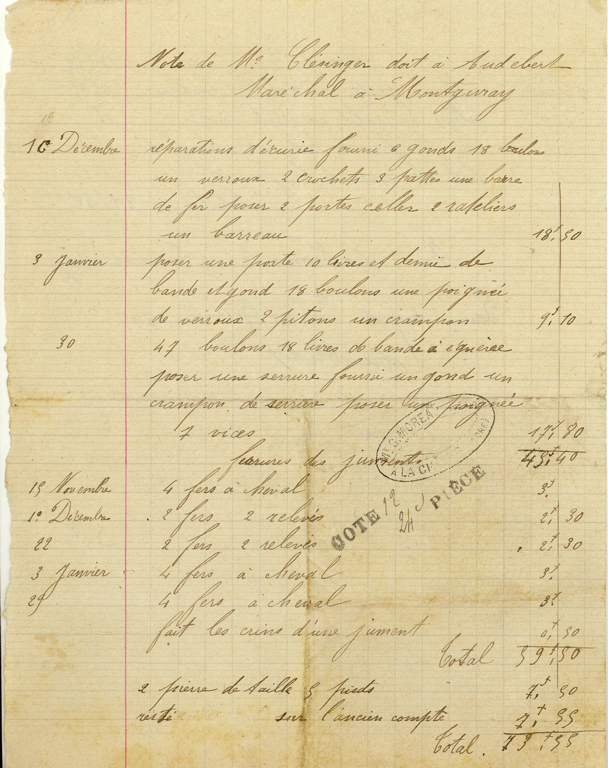 Note de Mr Clésinger doit à Audebert
Maréchal à Montgivray
16 Décembre réparations d'écurie fourni 6 gonds 18 boulons
un verroux 2 crochets 3 pattes une barre
de fer poser 2 portes celler 2 rateliers
un barreau 18f,50
3 Janvier poser une porte 10 livres et demie de
bande et gond 18 boulons une poignée
de verroux 2 pitons un crampon 9f,10
30 47 boulons 18 livres de bande à équérée
poser une serrure fourni un gond un
crampon de serrure poser une poignée
7 vices 17f,80
ferrures des juments 45f,40
Me G. MOREA
À LA CH
COTE 12 PIÈCE
24
15 Novembre 4 fers à cheval 3f
1er Décembre 2 fers 2 relevés 2f,30
22 2 fers 2 relevés 2f,30
3 Janvier 4 fers à cheval 3f
29 4 fers à cheval 3f
fait les crins d'une jument 0f,50
Total 59f,50
2 pierre de taille 5 pieds 7f,50
resté sur l'ancien compte 7f,55
Total. 74f,55